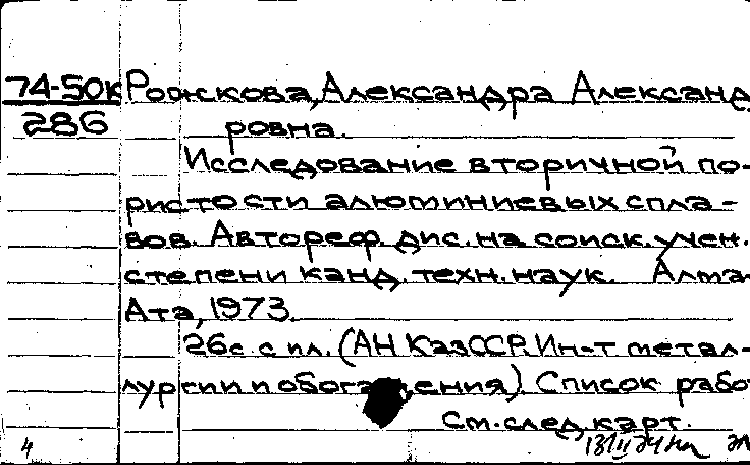 74-50к Рожкова, Александра Александ
286 ровна.
Исследование вторичной по-
ристости алюминиевых спла-
вов. Автореф. дис. на соиск. учен.
степени канд. техн. наук. Алма-
Ата, 1973.
26с. с ил. (АН КазССР. Ин-т метал-
лургии и обогащения). Список рабо
См. след. карт.
4